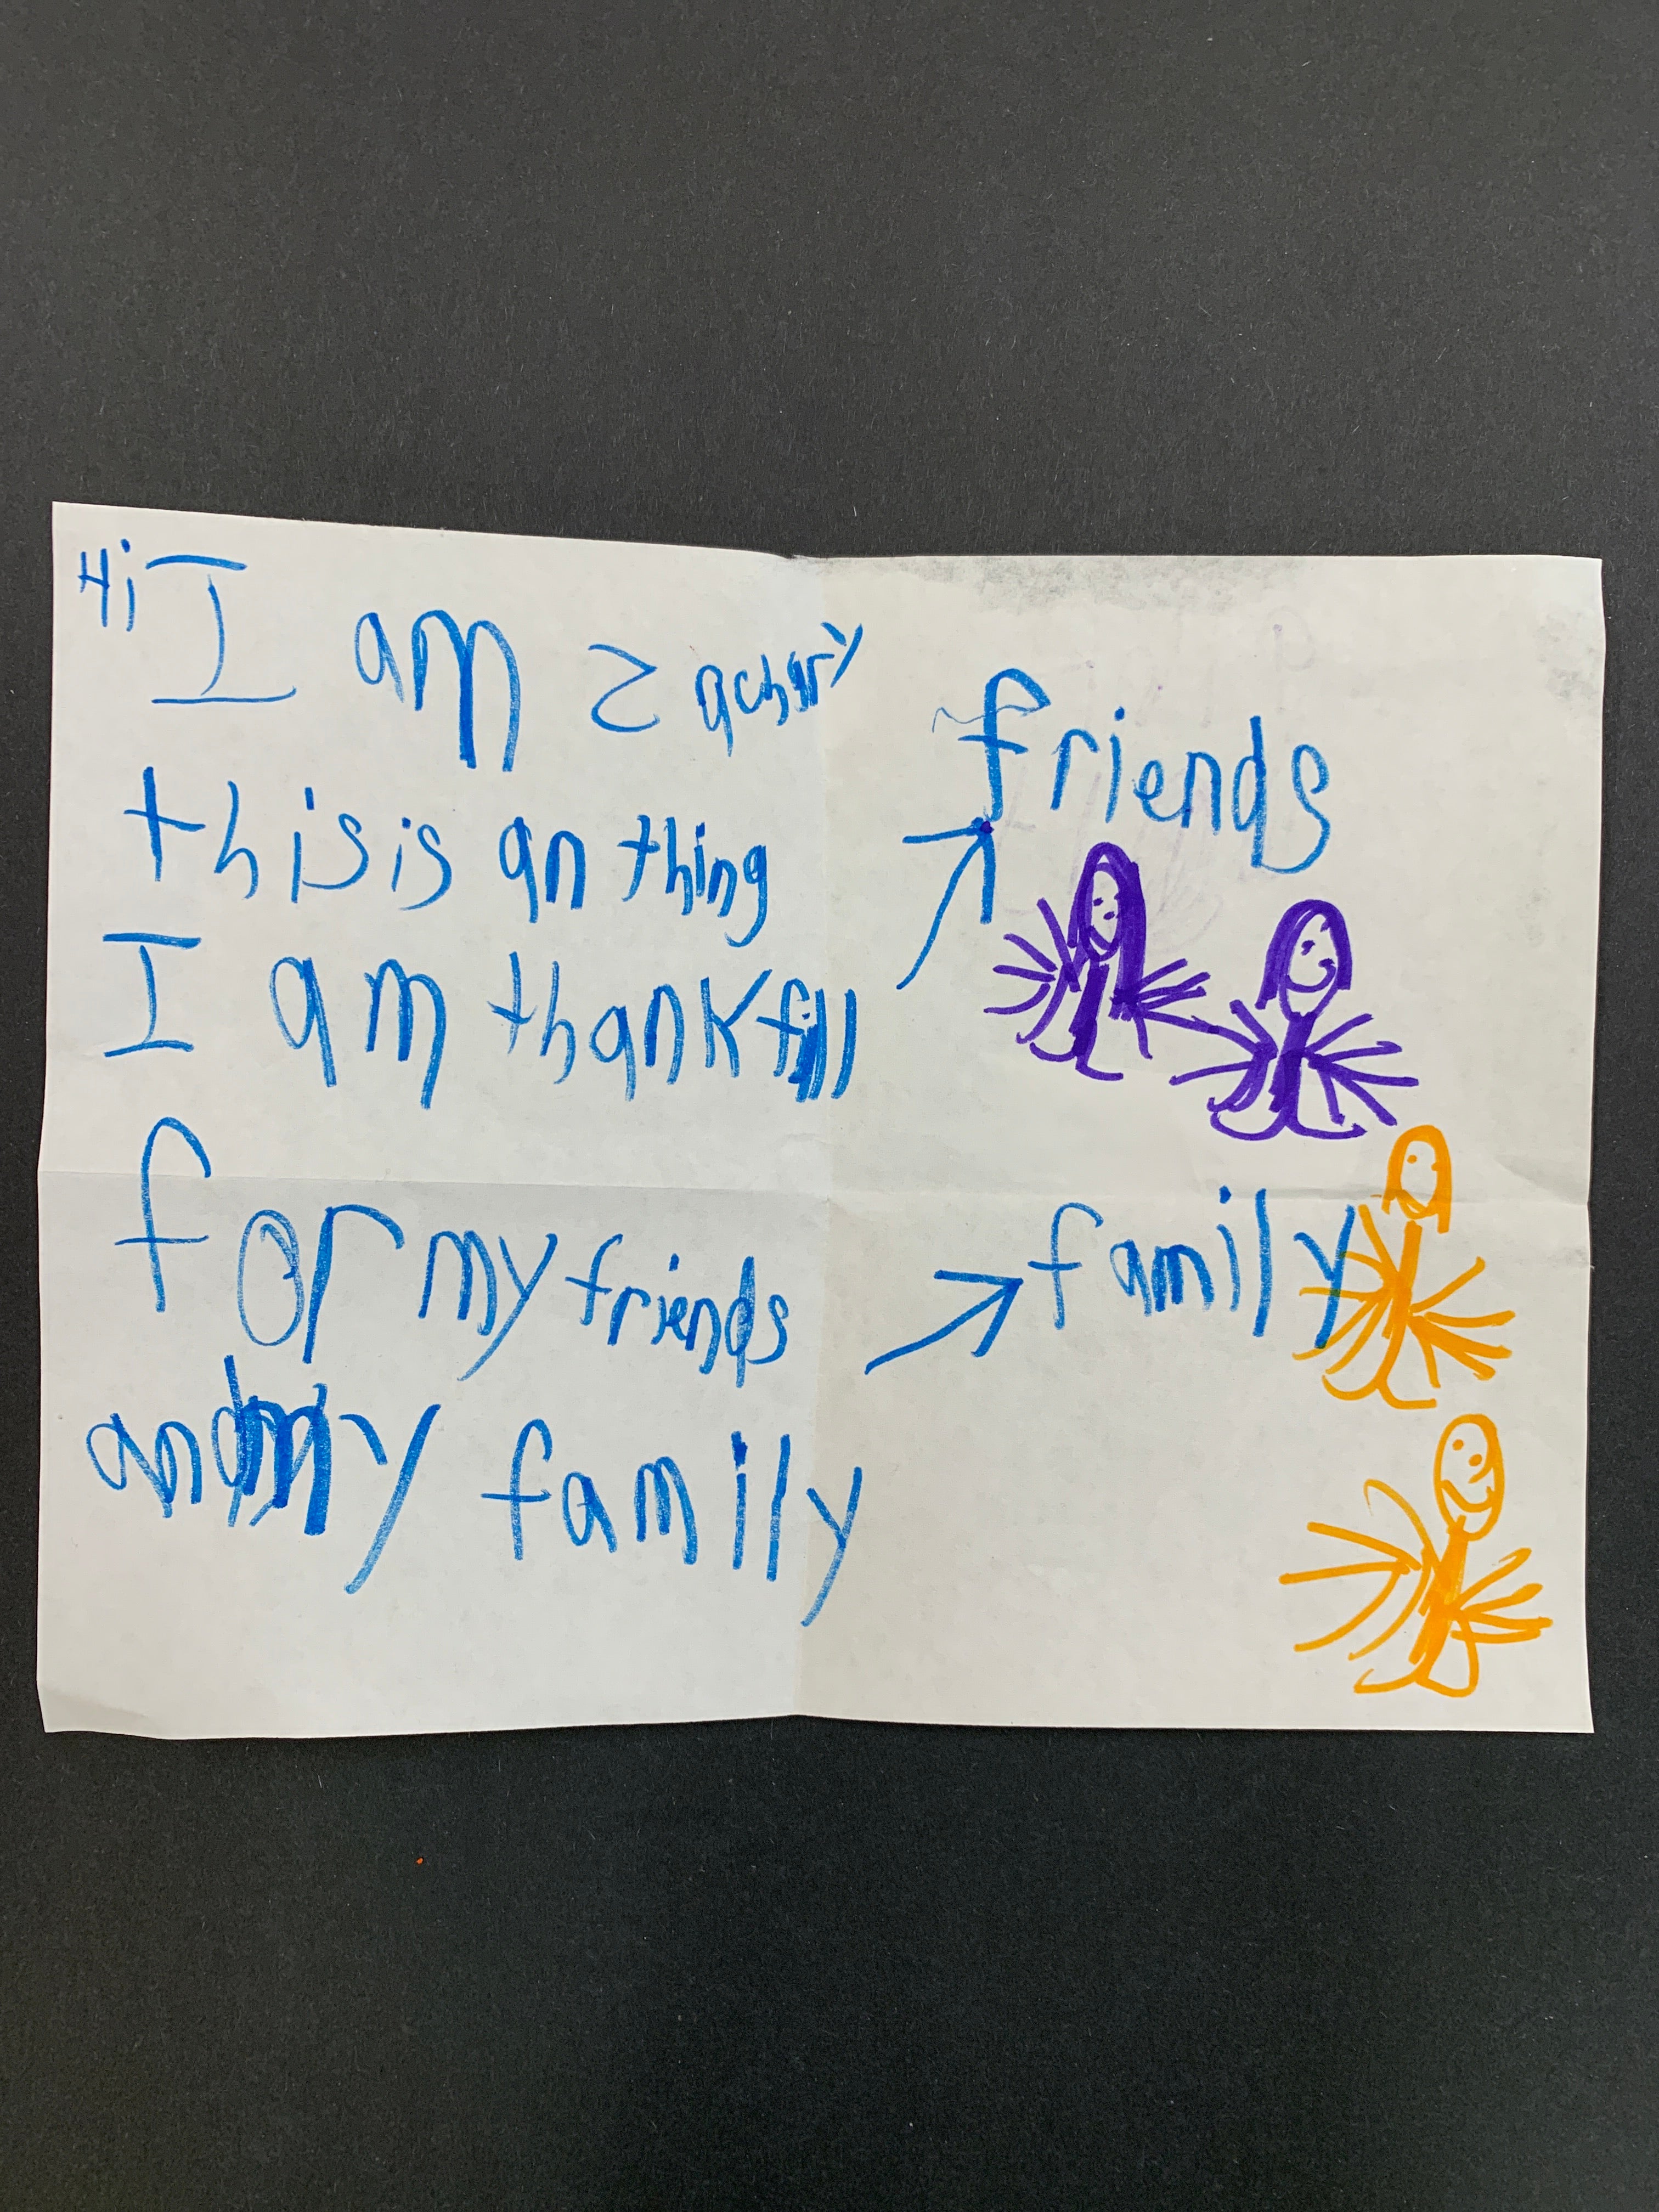 Hi I am Zachary
this is an thing
I am thankfull
for my friends
and my family
friends
family